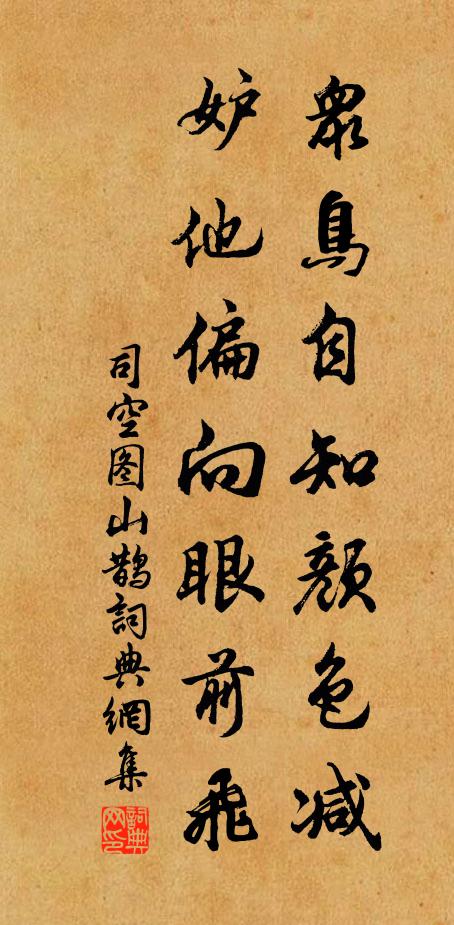 眾鳥自知顏色減
妒他偏向眼前飛
司空图山鵲詞典網集
詞典網印